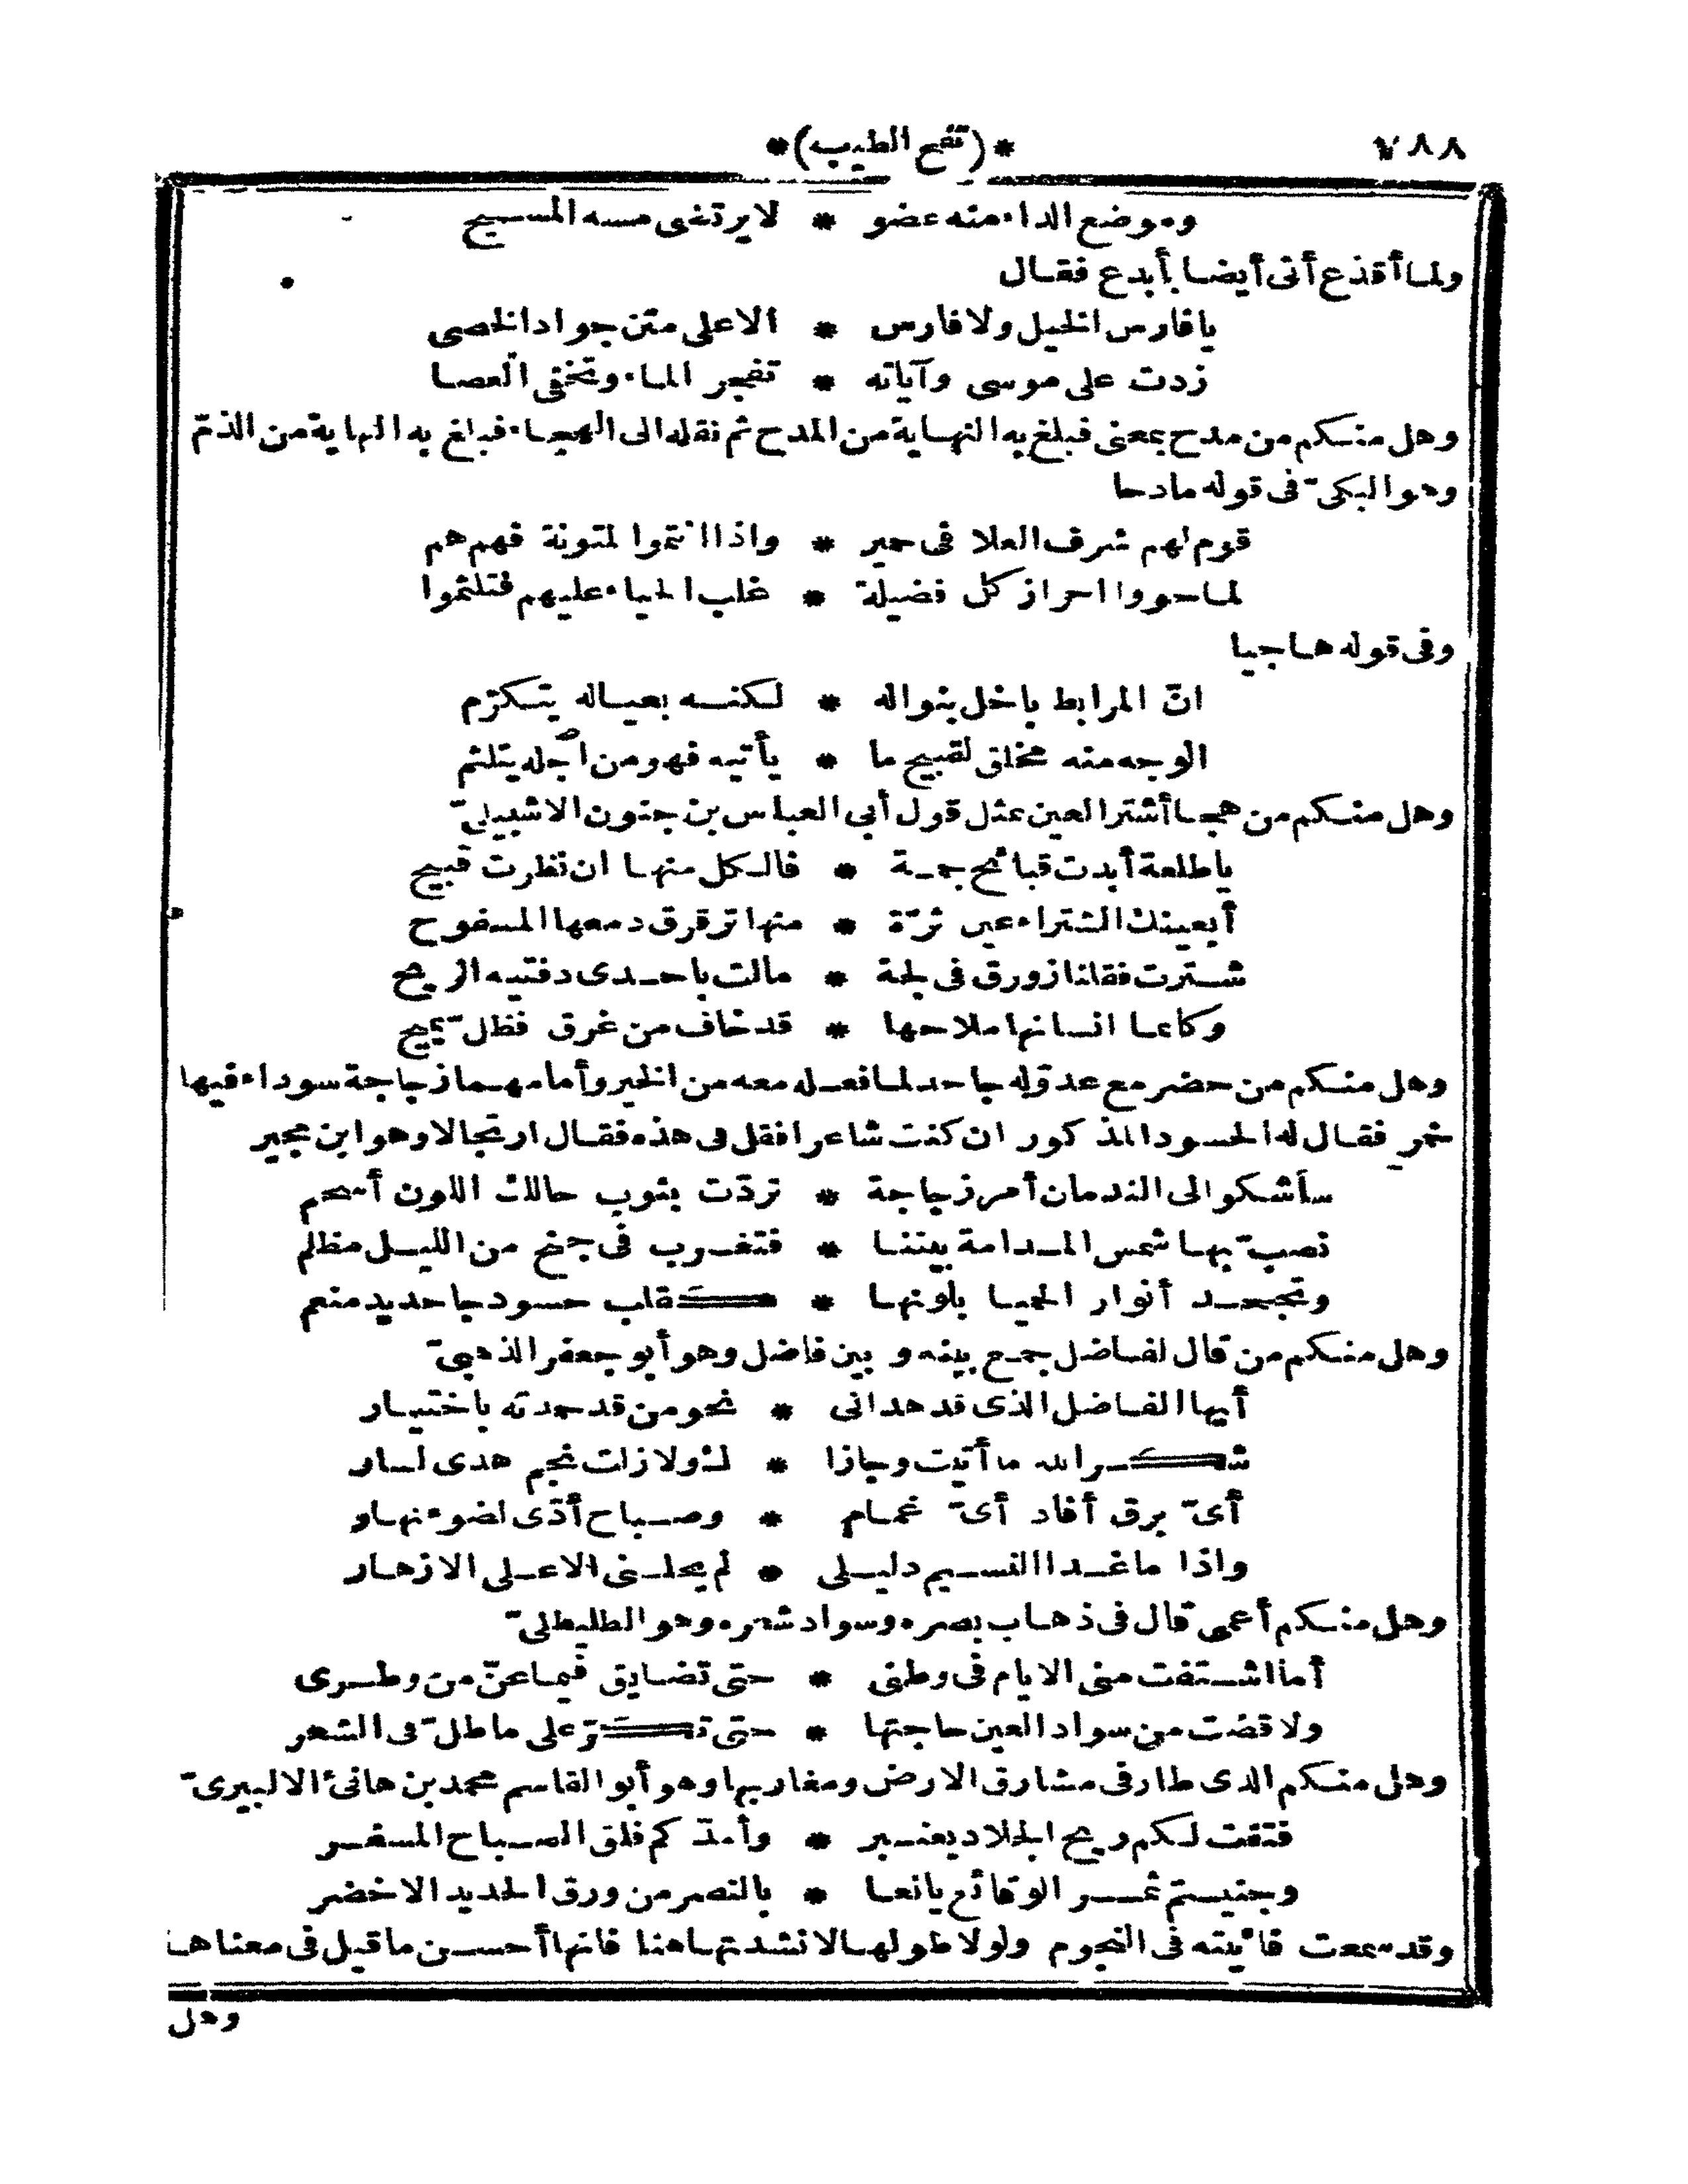 ٧٨٨
*(نفح الطيب)*
وموضع الداء منه عضو * لا يرتضى مسه المسيح
ولما أقذع أتى أيضا بأبدع فقال
يافارس الخيل ولا فارس * الاعلى متن جواد الخصى
زدت على موسى وآياته * تفجر الماء وتخفى العصا
وهل منكم من مدح بمعنى فبلغ به النهاية من المدح ثم نقله الى الهجاء فبلغ به النهاية من الذمّ
وهو البكىّ فى قوله مادحا
قوم لهم شرف العلا فى حمير * واذا انتموا لمتونة فهم هم
لما حووا احراز كل فضيلة * غلب الحياء عليهم فتلثموا
وفى قوله هاجيا
انّ المرابط باخل بنواله * لكنه بعياله يتكرّم
الوجه منه مخلق لقبيح ما * يأتيه فهو من اجله يتلثم
وهل منكم من هجا أشتر العين بمثل قول أبى العباس بن حنون الاشبيلىّ
ياطلعة أبدت قبائح جمة * فالكل منها ان نظرت قبيح
أبعينك الشتراء عين ثرّة * منها ترقرق دمعها المسفوح
شترت فقلنا زورق فى لجة * مالت باحدى دفتيه الريح
وكانما انسانها ملاحها * قد خاف من غرق فظلّ يميح
وهل منكم من حضر مع عدوّ له جاحد لما فعله معه من الخير وأمامهما زجاجة سوداء فيها
خمر فقال له الحسود المذكور ان كنت شاعرا فقل فى هذه فقال ارتجالا وهو ابن مجبر
سأشكو الى الندمان أمر زجاجة * تردّت بثوب حالك اللون أسحم
نصبّ بها شمس المدامة بيننا * فتغرب فى جنح من الليل مظلم
وتجحد أنوار الحميا بلونها * كقلب حسود جاحد يد منعم
وهل منكم من قال لفاضل جمع بينه و بين فاضل وهو أبو جعفر الذهبىّ
أيها الفاضل الذى قد هدانى * نحو من قد حمدته باختيار
شكر الله ما أتيت وجازا * ك ولا زلت نجم هدى لسار
أىّ برق أفاد أىّ غمام * وصباح أدّى لضوء نهار
واذا ما غدا النسيم دليلى * لم يحلنى الاعلى الازهار
وهل منكم أعمى قال فى ذهاب بصره وسواد شعره وهو الطليطلىّ
أما اشتفت منى الايام فى وطنى * حتى تضايق فيما عنّ من وطرى
ولا قضت من سواد العين حاجتها * حتى تكرّ على ما طلّ فى الشعر
وهل منكم الذى طار فى مشارق الارض ومغاربها وهو أبو القاسم محمد بن هانئ الالبيرىّ
فتقت لكم ريح الجلاد بعنبر * وأمدّكم فلق الصباح المسفر
وجنيتم ثمر الوقائع يانعا * بالنصر من ورق الحديد الاخضر
وقد سمعت فائيته فى النجوم ولولا طولها لانشدتها هنا فانها أحسن ما قيل فى معناها
وهل